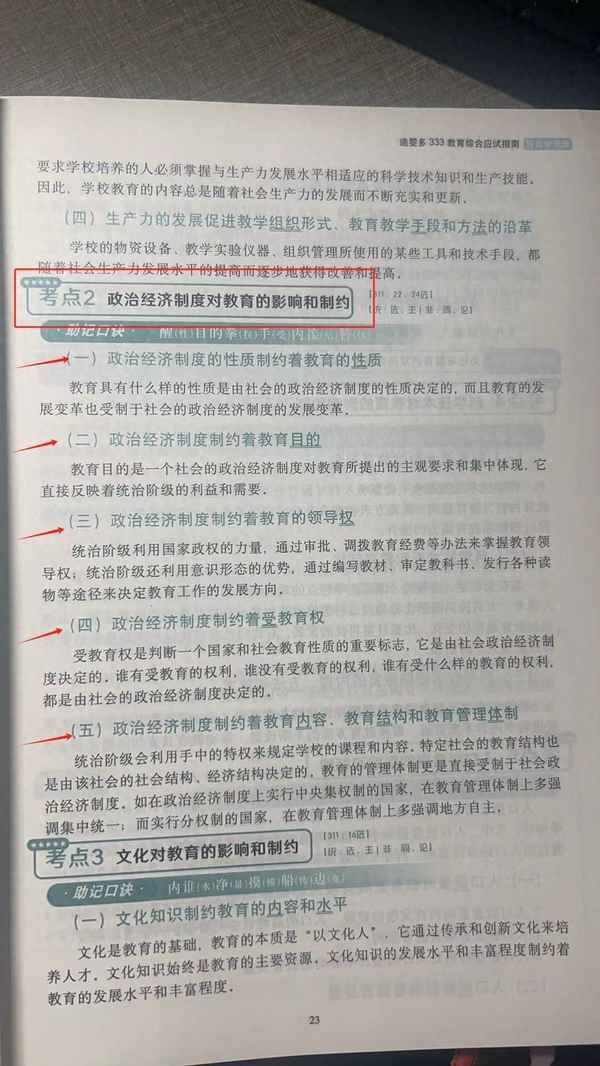 造婴多 333 教育综合应试指南
要求学校培养的人必须掌握与生产力发展水平相适应的科学技术知识和生产技能。
因此，学校教育的内容总是随着社会生产力的发展而不断充实和更新。
（四）生产力的发展促进教学组织形式、教育教学手段和方法的沿革
学校的物资设备、教学实验仪器、组织管理所使用的某些工具和技术手段，都
随着社会生产力发展水平的提高而逐步地获得改善和提高。
考点2 政治经济制度对教育的影响和制约
[311：22、24选]
[析、选、王|非、简、论]
·助记口诀· 醒（性）目的拳（权）手（受）内
（一）政治经济制度的性质制约着教育的性质
教育具有什么样的性质是由社会的政治经济制度的性质决定的，而且教育的发
展变革也受制于社会的政治经济制度的发展变革。
（二）政治经济制度制约着教育目的
教育目的是一个社会的政治经济制度对教育所提出的主观要求和集中体现，它
直接反映着统治阶级的利益和需要。
（三）政治经济制度制约着教育的领导权
统治阶级利用国家政权的力量，通过审批、调拨教育经费等办法来掌握教育领
导权；统治阶级还利用意识形态的优势，通过编写教材、审定教科书、发行各种读
物等途径来决定教育工作的发展方向。
（四）政治经济制度制约着受教育权
受教育权是判断一个国家和社会教育性质的重要标志，它是由社会政治经济制
度决定的。谁有受教育的权利，谁没有受教育的权利，谁有受什么样的教育的权利，
都是由社会的政治经济制度决定的。
（五）政治经济制度制约着教育内容、教育结构和教育管理体制
统治阶级会利用手中的特权来规定学校的课程和内容。特定社会的教育结构也
是由该社会的社会结构、经济结构决定的。教育的管理体制更是直接受制于社会政
治经济制度。如在政治经济制度上实行中央集权制的国家，在教育管理体制上多强
调集中统一；而实行分权制的国家，在教育管理体制上多强调地方自主。
考点3 文化对教育的影响和制约
[311：16选]
[析、选、王|非、简、论]
·助记口诀· 内谁（水）净（景）摸（模）船（传）边（变）
（一）文化知识制约教育的内容和水平
文化是教育的基础，教育的本质是“以文化人”，它通过传承和创新文化来培
养人才。文化知识始终是教育的主要资源。文化知识的发展水平和丰富程度制约着
教育的发展水平和丰富程度。
23